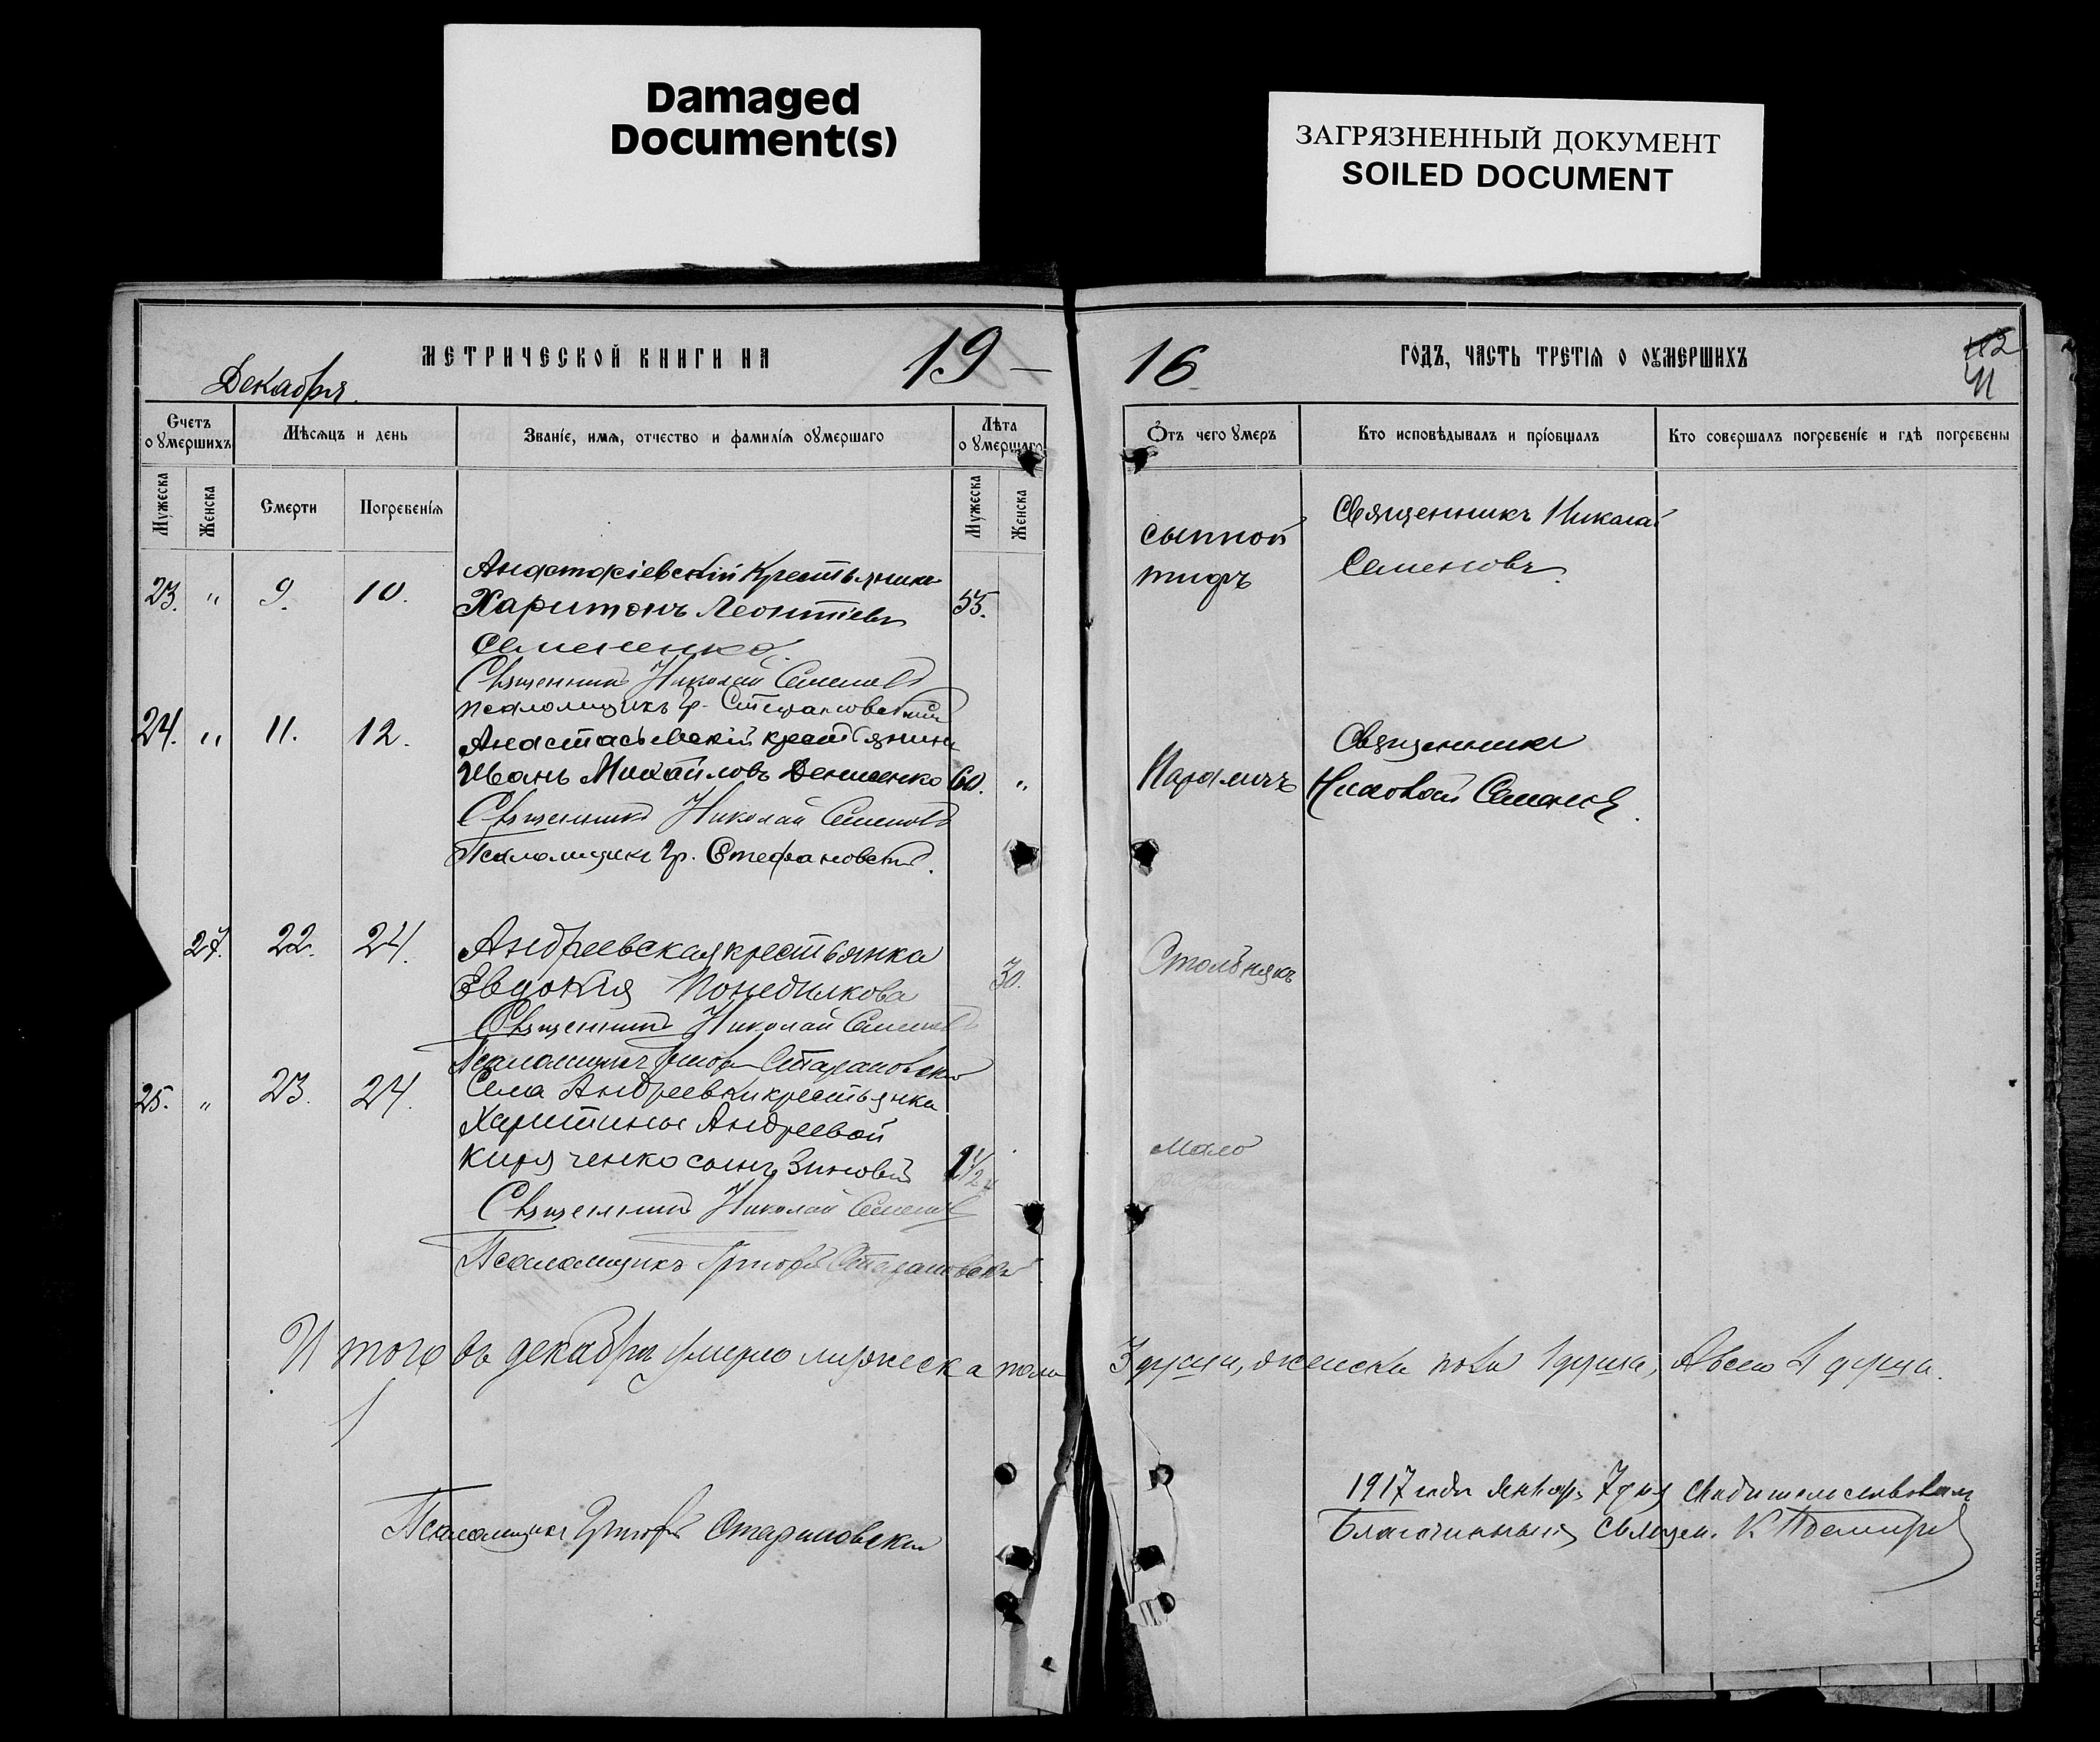 Damaged
Document(s)
ЗАГРЯЗНЕННЫЙ ДОКУМЕНТ
SOILED DOCUMENT
МЕТРИЧЕСКОЙ КНИГИ НА 19
Декабря.
Счетъ оумершихъ
Мѣсяцъ и день
Званіе, имя, отчество и фамилія оумершаго
Лѣта оумершаго
Мужеска
Женска
Смерти
Погребенія
Мужеска
Женска
23. " 9. 10.
Анастасіевскій Крестьянинъ
Харитонъ Леонтіевъ 55.
Семененко.
Священникъ Николай Семеновъ
псаломщикъ Гр. Стефановскій
24. " 11. 12.
Анастасьевскій крестьянинъ
Иванъ Михайловъ Денисенко 60. "
Священникъ Николай Семеновъ
Псаломщикъ Гр. Стефановскій.
27. 22. 24.
Андреевская крестьянка
Евдокія Понедилкова 30.
Священникъ Николай Семеновъ
Псаломщикъ Григорій Стефановскій
25. " 23. 24.
Села Андреевки крестьянки
Харитины Андреевой
Киряченко сынъ Зиновій 1 1/2
Священникъ Николай Семеновъ
Псаломщикъ Григорій Стефановскій
Итого въ декабрѣ умерло мужеска пола
Псаломщикъ Григорій Стефановскій
16 ГОДЪ, ЧАСТЬ ТРЕТІЯ О ОУМЕРШИХЪ
112
41
Отъ чего умеръ
Кто исповѣдывалъ и пріобщалъ
Кто совершалъ погребеніе и гдѣ погребены
сыпной
тифъ
Священникъ Николай
Семеновъ.
Параличъ
Священникъ
Николай Семеновъ.
Столбнякъ
Мало
3 души, женска пола 1 душа, А всего 4 души.
1917 года Январ. 7 дня свидѣтельствовалъ
Благочинный Священ. К